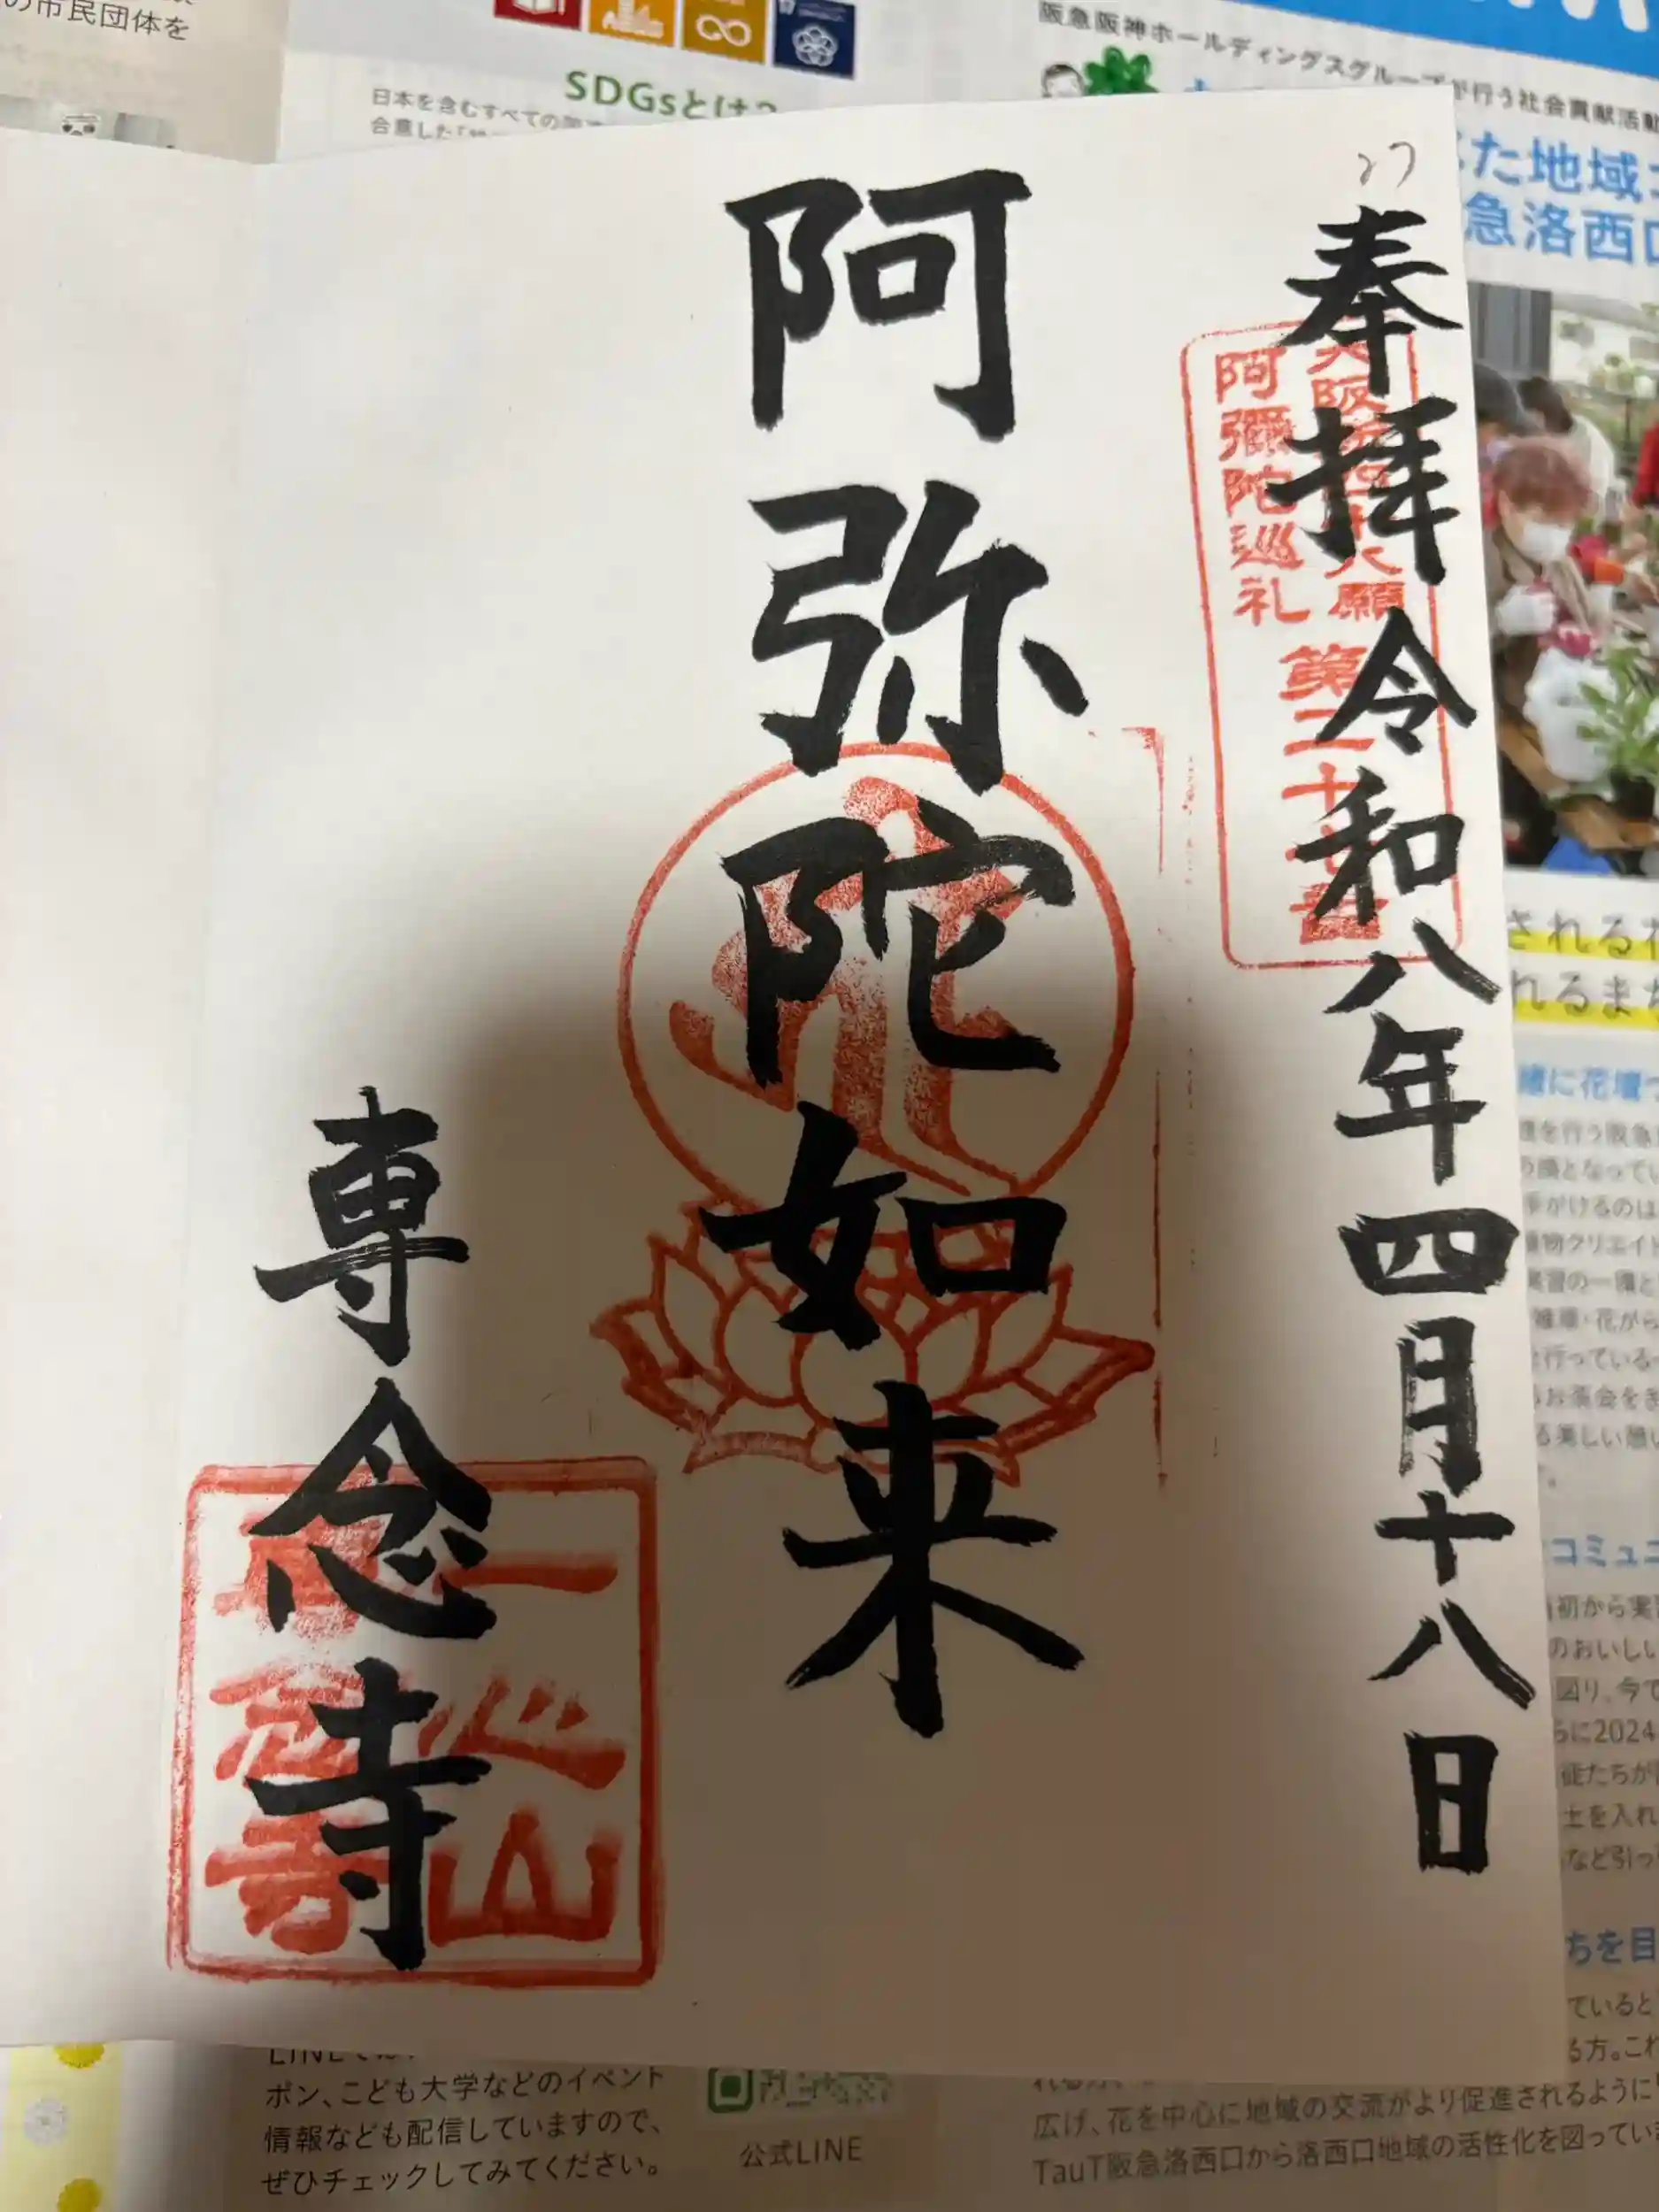 の市民団体を
SDGsとは?
日本を含むすべての
合意した
阪急阪神ホールディングスグループが行う社会貢献活動
た地域
急洛西口
27
奉拝 令和八年四月十八日
大阪 願
阿彌陀巡礼
第二十七番
阿弥陀如来
専念寺
一心山
専念寺
される
れるまち
緒に花壇
コミュニ
初から実
のおいしい
図り、今で
らに2024
徒たちが
土を入れ
など引っ
ちを目
ていると
る方。これ
LINE
ポン、こども大学などのイベント
情報なども配信していますので、
ぜひチェックしてみてください。
公式LINE
広げ、花を中心に地域の交流がより促進されるように
TauT阪急洛西口から洛西口地域の活性化を図ってい